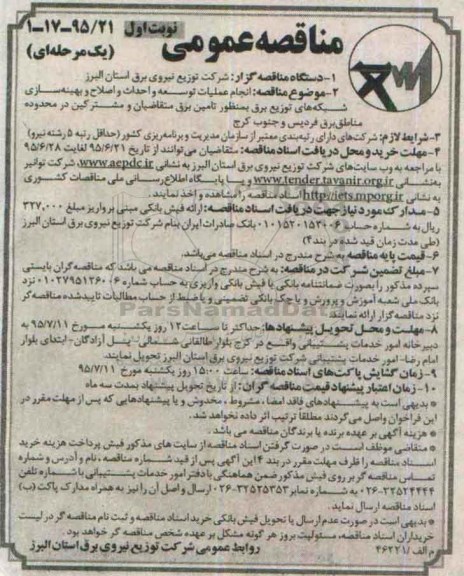 نوبت اول ۹۵/۲۱-۱۷-۱
مناقصه عمومی
(یک مرحله‌ای)
۱-دستگاه مناقصه گزار: شرکت توزیع نیروی برق استان البرز
۲-موضوع مناقصه: انجام عملیات توسعه و احداث و اصلاح و بهینه‌سازی
شبکه‌های توزیع برق بمنظور تامین برق متقاضیان و مشترکین در محدوده
مناطق برق فردیس و جنوب کرج
۳-شرایط لازم: شرکت‌های دارای رتبه‌بندی معتبر از سازمان مدیریت و برنامه‌ریزی کشور (حداقل رتبه ۵ رشته نیرو)
۴-مهلت خرید و محل دریافت اسناد مناقصه: متقاضیان می‌توانند از تاریخ ۹۵/۶/۲۱ لغایت ۹۵/۶/۲۸
با مراجعه به وب سایت‌های شرکت توزیع نیروی برق استان البرز به نشانی www.aepdc.ir، شرکت توانیر
به‌نشانی www.tender.tavanir.org.ir و یا پایگاه اطلاع‌رسانی ملی مناقصات کشوری
به نشانی http//iets.mporg.ir اسناد مناقصه را مشاهده و اخذ نمایند.
۵-مدارک مورد نیاز جهت دریافت اسناد مناقصه: ارائه فیش بانکی مبنی بر واریز مبلغ ۳۲۷,۰۰۰
ریال به شماره حساب ۰۱۰۱۵۲۰۱۵۳۰۰۶ بانک صادرات ایران بنام شرکت توزیع نیروی برق استان البرز
(طی مدت زمان قید شده در بند ۴)
۶-قیمت پایه مناقصه به شرح مندرج در اسناد مناقصه می‌باشد.
۷-مبلغ تضمین شرکت در مناقصه: به شرح مندرج در اسناد مناقصه می باشد که مناقصه‌گران بایستی
سپرده مذکور را بصورت ضمانتنامه بانکی یا فیش بانکی واریزی به حساب شماره ۰۱۰۲۷۹۵۱۲۶۰۰۶ نزد
بانک ملی شعبه آموزش و پرورش و یا چک بانکی تضمینی و یا ضبط از حساب مطالبات تاییدشده مناقصه‌گر
نزد مناقصه‌گزار ارائه نمایند.
۸-مهلت و محل تحویل پیشنهادها: حداکثر تا ساعت ۱۲ روز یکشنبه مورخ ۹۵/۷/۱۱ به
دبیرخانه امور خدمات پشتیبانی واقع در کرج بلوار طالقانی شمالی- پل آزادگان- ابتدای بلوار
امام رضا- امور خدمات پشتیبانی شرکت توزیع نیروی برق استان البرز تحویل نمایند.
۹-زمان گشایش پاکت‌های اسناد مناقصه: ساعت ۱۵:۰۰ روز یکشنبه مورخ ۹۵/۷/۱۱
۱۰-زمان اعتبار پیشنهاد قیمت مناقصه گران: از تاریخ تحویل پیشنهاد بمدت سه ماه
* بدیهی است به پیشنهادهای فاقد امضا، مشروط، مخدوش و یا پیشنهادهایی که پس از مهلت مقرر در
این فراخوان واصل می‌گردند مطلقا ترتیب اثر داده نخواهد شد.
* هزینه آگهی بر عهده برنده یا برندگان مناقصه می باشد.
* متقاضی موظف است در صورت گرفتن اسناد مناقصه از سایت های مذکور فیش پرداخت هزینه خرید
اسناد مناقصه را ظرف مهلت مقرر در بند ۴ این آگهی پس از قید شماره مناقصه، نام و آدرس و شماره
تماس مناقصه گر بر روی فیش مذکور ضمن هماهنگی با دفتر امور خدمات پشتیبانی با شماره تلفن
۰۲۶-۳۲۵۲۴۴۲۴ به شماره نمابر ۰۲۶-۳۲۵۲۵۳۵۳ ارسال و اصل آن را نیز به همراه مدارک پاکت (ب)
اسناد مناقصه ارسال نماید.
* بدیهی است در صورت عدم ارسال یا تحویل فیش بانکی خرید اسناد مناقصه و ثبت نام مناقصه گر در لیست
خریداران اسناد مناقصه، مسئولیت بروز هر گونه مشکل بر عهده شخص مناقصه گر خواهد بود.
روابط عمومی شرکت توزیع نیروی برق استان البرز
م الف /۴۶۲۲۱
ParsNamadData